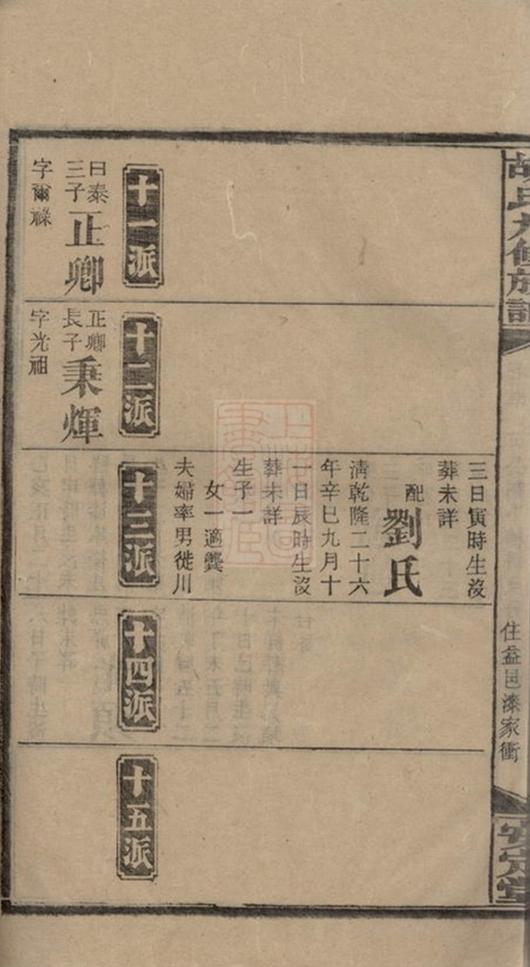 胡氏九修族譜
住益邑漆家衝
安定堂
三日寅時生沒
葬未詳
配劉氏
清乾隆二十六
年辛巳九月十
一日辰時生沒
葬未詳
生子一
女一適龔
夫婦率男徙川
十一派
十二派
十三派
十四派
十五派
曰泰
三子
正卿
字爾祿
正卿
長子
秉煇
字光祖